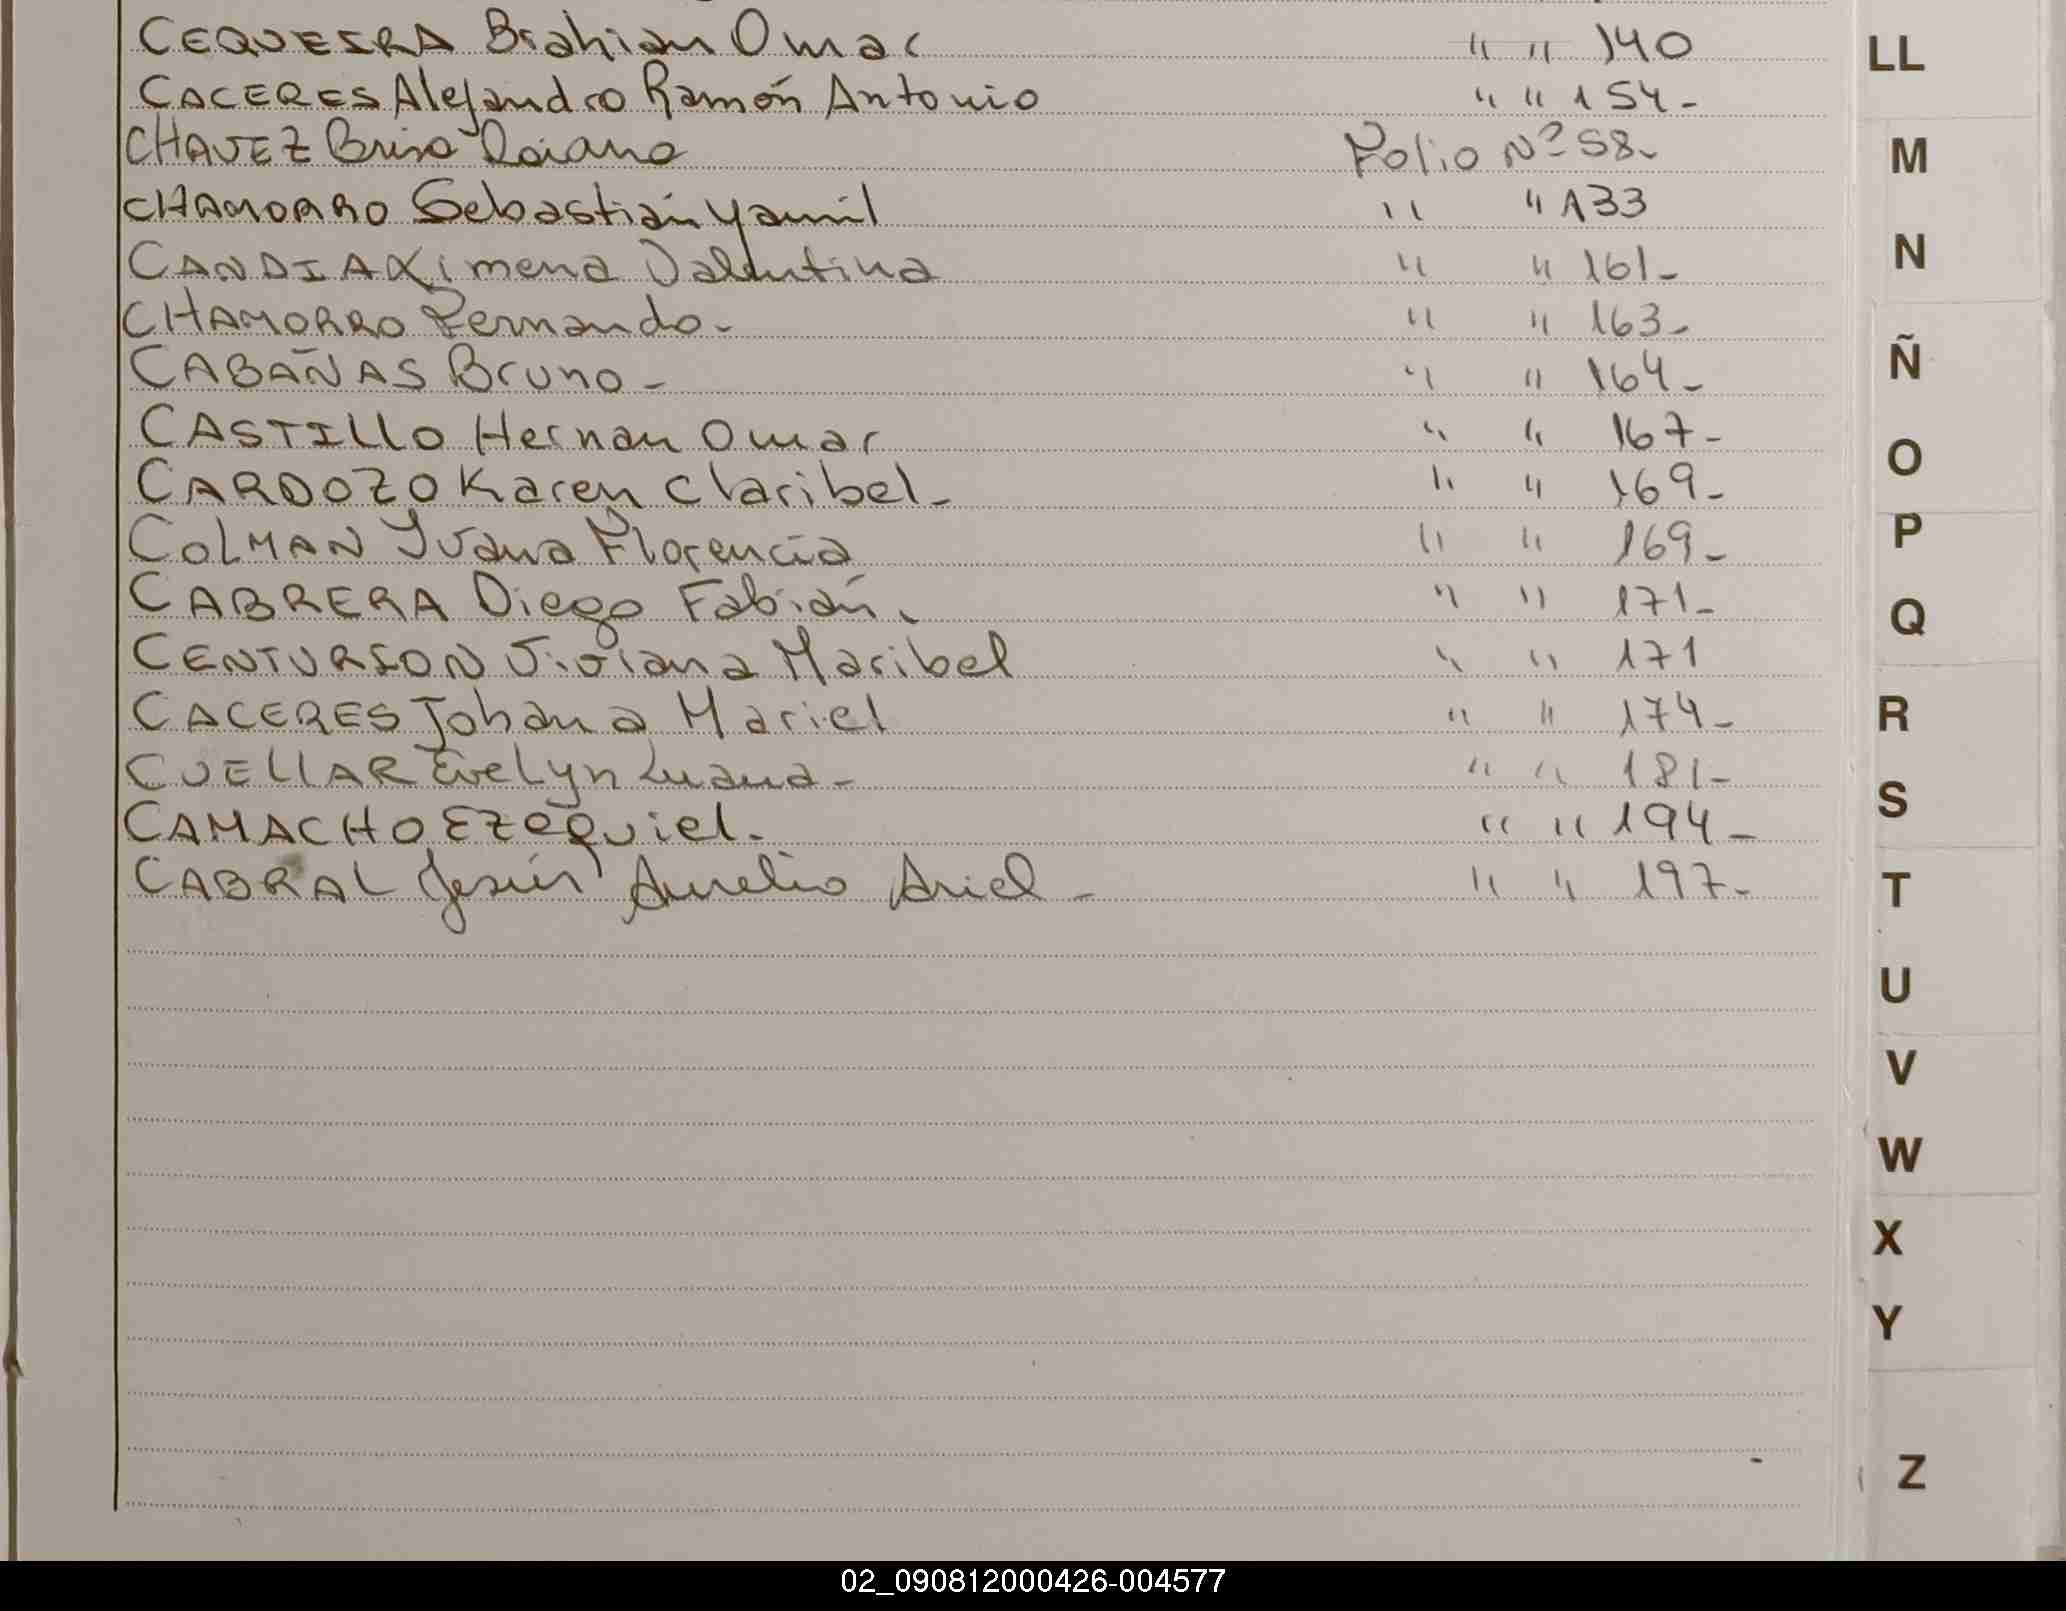 CEQUEIRA Brahian Omar " " 140
CACERES Alejandro Ramón Antonio " " 154-
CHAVEZ Brisa Daiana Folio Nº 58-
CHAMORRO Sebastián Yamil " " 133
CANDIA Ximena Valentina " " 161-
CHAMORRO Fernando- " " 163-
CABAÑAS Bruno- " " 164-
CASTILLO Hernan Omar " " 167-
CARDOZO Karen Claribel- " " 169-
COLMAN Ivana Florencia " " 169-
CABRERA Diego Fabián. " " 171-
CENTURION Viviana Maribel " " 171
CACERES Johana Mariel " " 174-
CUELLAR Evelyn Luana- " " 181-
CAMACHO Ezequiel. " " 194-
CABRAL Jesús Aurelio Ariel- " " 197-
LL
M
N
Ñ
O
P
Q
R
S
T
U
V
W
X
Y
Z
02_090812000426-004577